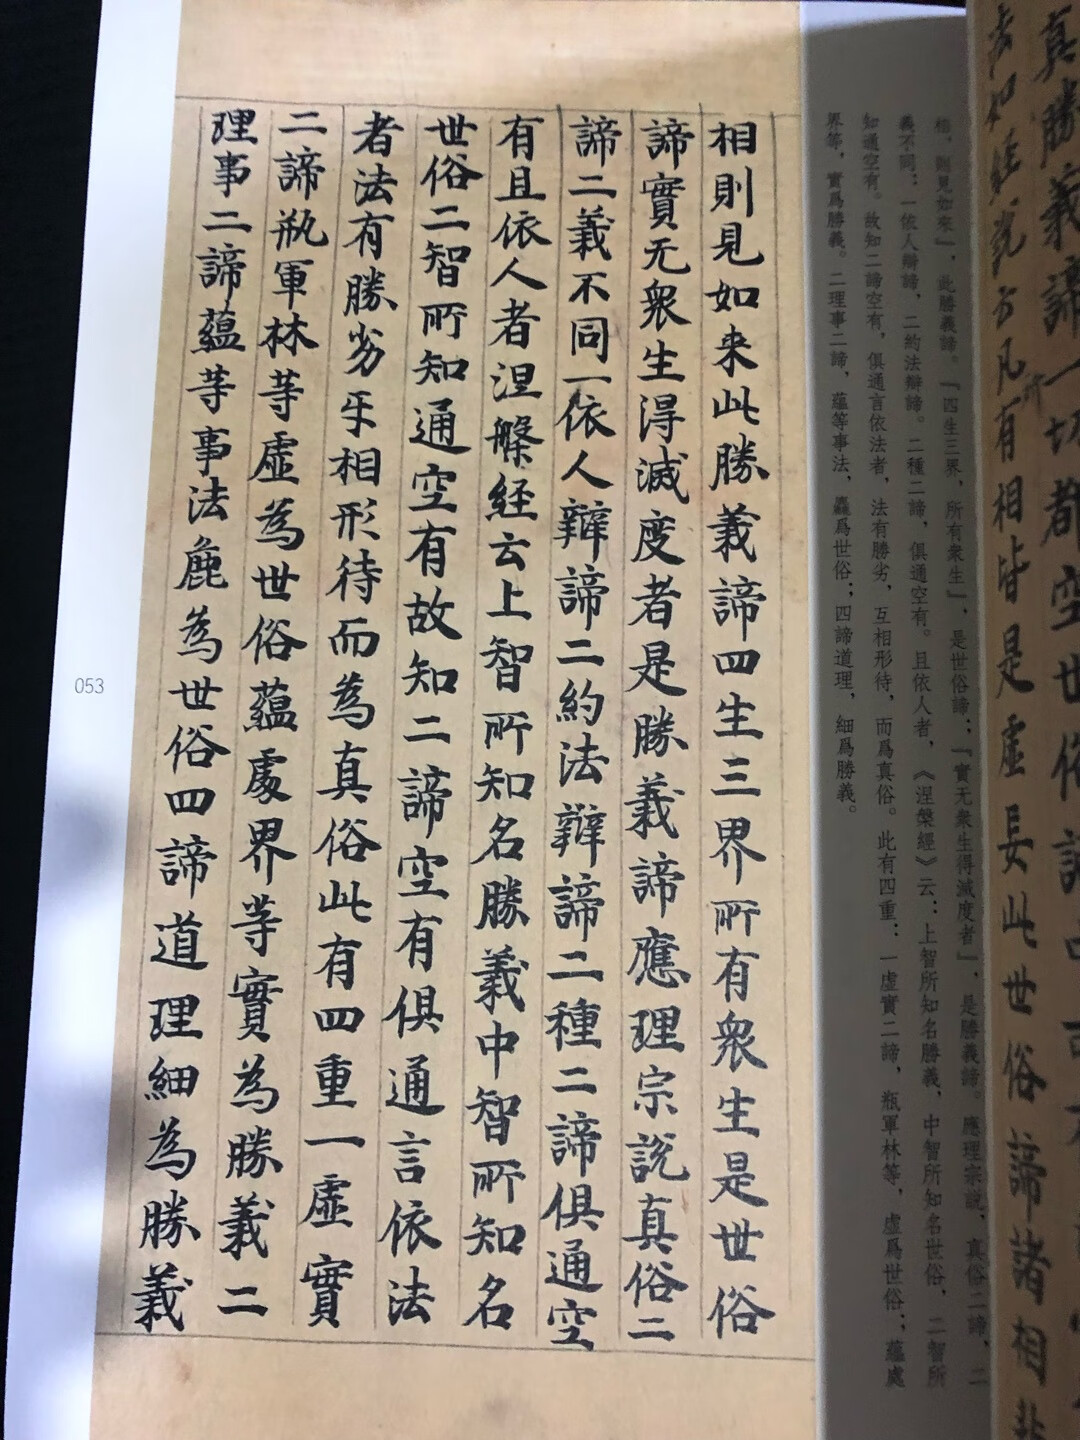 真勝義諦一切都空世俗諦
去如經說言凡所有相皆是虛妄此世俗諦諸相
相，則見如來』，此勝義諦。「四生三界，所有衆生」，是世俗諦；「實无衆生得滅度者」，是勝義諦。應理宗說，真俗二諦，二
義不同：一依人辯諦，二約法辯諦。二種二諦，俱通空有。且依人者，《涅槃經》云：上智所知名勝義，中智所知名世俗，二智所
知通空有。故知二諦空有，俱通言依法者，法有勝劣，互相形待，而爲真俗。此有四重：一虛實二諦，瓶軍林等，虛爲世俗；蘊處
界等，實爲勝義。二理事二諦，蘊等事法，麤爲世俗；四諦道理，細爲勝義。
相則見如来此勝義諦四生三界所有衆生是世俗
諦實无衆生得滅度者是勝義諦應理宗說真俗二
諦二義不同一依人辯諦二約法辯諦二種二諦俱通空
有且依人者涅槃経云上智所知名勝義中智所知名
世俗二智所知通空有故知二諦空有俱通言依法
者法有勝劣互相形待而為真俗此有四重一虛實
二諦瓶軍林等虛為世俗蘊處界等實為勝義二
理事二諦蘊等事法麁為世俗四諦道理細為勝義
053